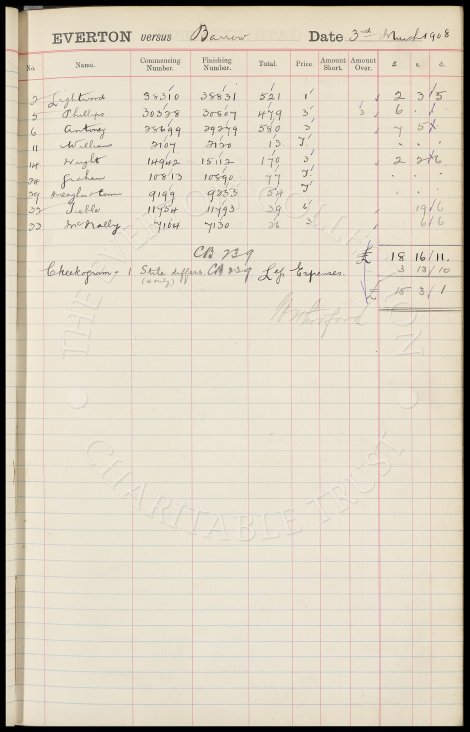 EVERTON versus Barrow Date 3rd March 1908
No. Name. Commencing Number. Finishing Number. Total. Price. Amount Short. Amount Over. £ s. d.
2 Lightwood 38310 38831 521 1' 2 3/5
5 Phillips 30328 30807 479 3' 3 6 . .
6 28699 29279 580 3' 7 5
11 Williams 2107 2120 13 J'
14 Wright 14942 15112 170 3' 2 2 6
24 Graham 10813 10890 77 J'
29 9199 9253 54 J'
32 11754 11793 39 6' 19/6
33 McNally 7104 7130 26 3' 6/6
CB 239 £ 18 16/11.
- 1 State differs. CB 239 Less Expenses. 3 13/10
£ 15 3/1
THE EVERTON COLLECTION
CHARITABLE TRUST